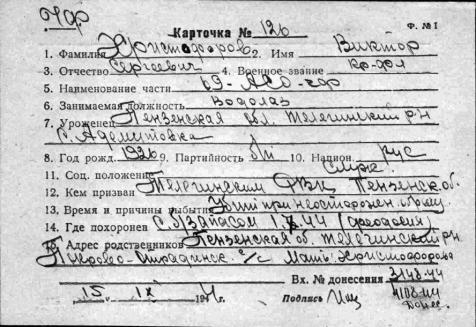 ЧФ
Карточка № 126
Ф. №1
1. Фамилия Христофоров 2. Имя Виктор
3. Отчество Сергеевич 4. Военное звание кр-фл
5. Наименование части 69-АСО-ЧФ
6. Занимаемая должность Водолаз
7. Уроженец Пензенская обл. Телегинский р-н
8. Год рожд. 1926 9. Партийность б/п 10. Национ. рус
11. Соц. положение служ.
12. Кем призван Телегинским РВК Пензенск. об.
13. Время и причины выбытия Убит при неосторожн. обращ.
14. Где похоронен 44 (Феодосия)
15. Адрес родственников Пензенская об. Телегинский р-н
с/с Мать: Христофорова
Вх. № донесения 3148-44
15. IX 1944 г. Подпись